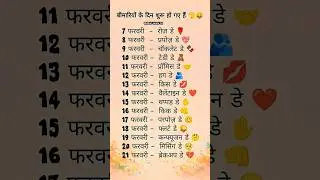 बीमारियों के दिन शुरू हो गए हैं 🫣😜
7 फरवरी - रोज डे 🌹
8 फरवरी - प्रपोज़ डे 💖
9 फरवरी - चॉकलेट डे 🍫
10 फरवरी - टेडी डे 🧸
11 फरवरी - प्रॉमिस डे 🤝
12 फरवरी - हग डे 🫂
13 फरवरी - किस डे 💋
14 फरवरी - वैलेंटाइन डे ❤️
15 फरवरी - थप्पड़ डे
16 फरवरी - किक डे
17 फरवरी - परफ्यूम डे
18 फरवरी - फ्लर्ट डे 😜
19 फरवरी - कन्फ्यूजन डे 🤔
20 फरवरी - मिसिंग डे
21 फरवरी - ब्रेकअप डे 💔